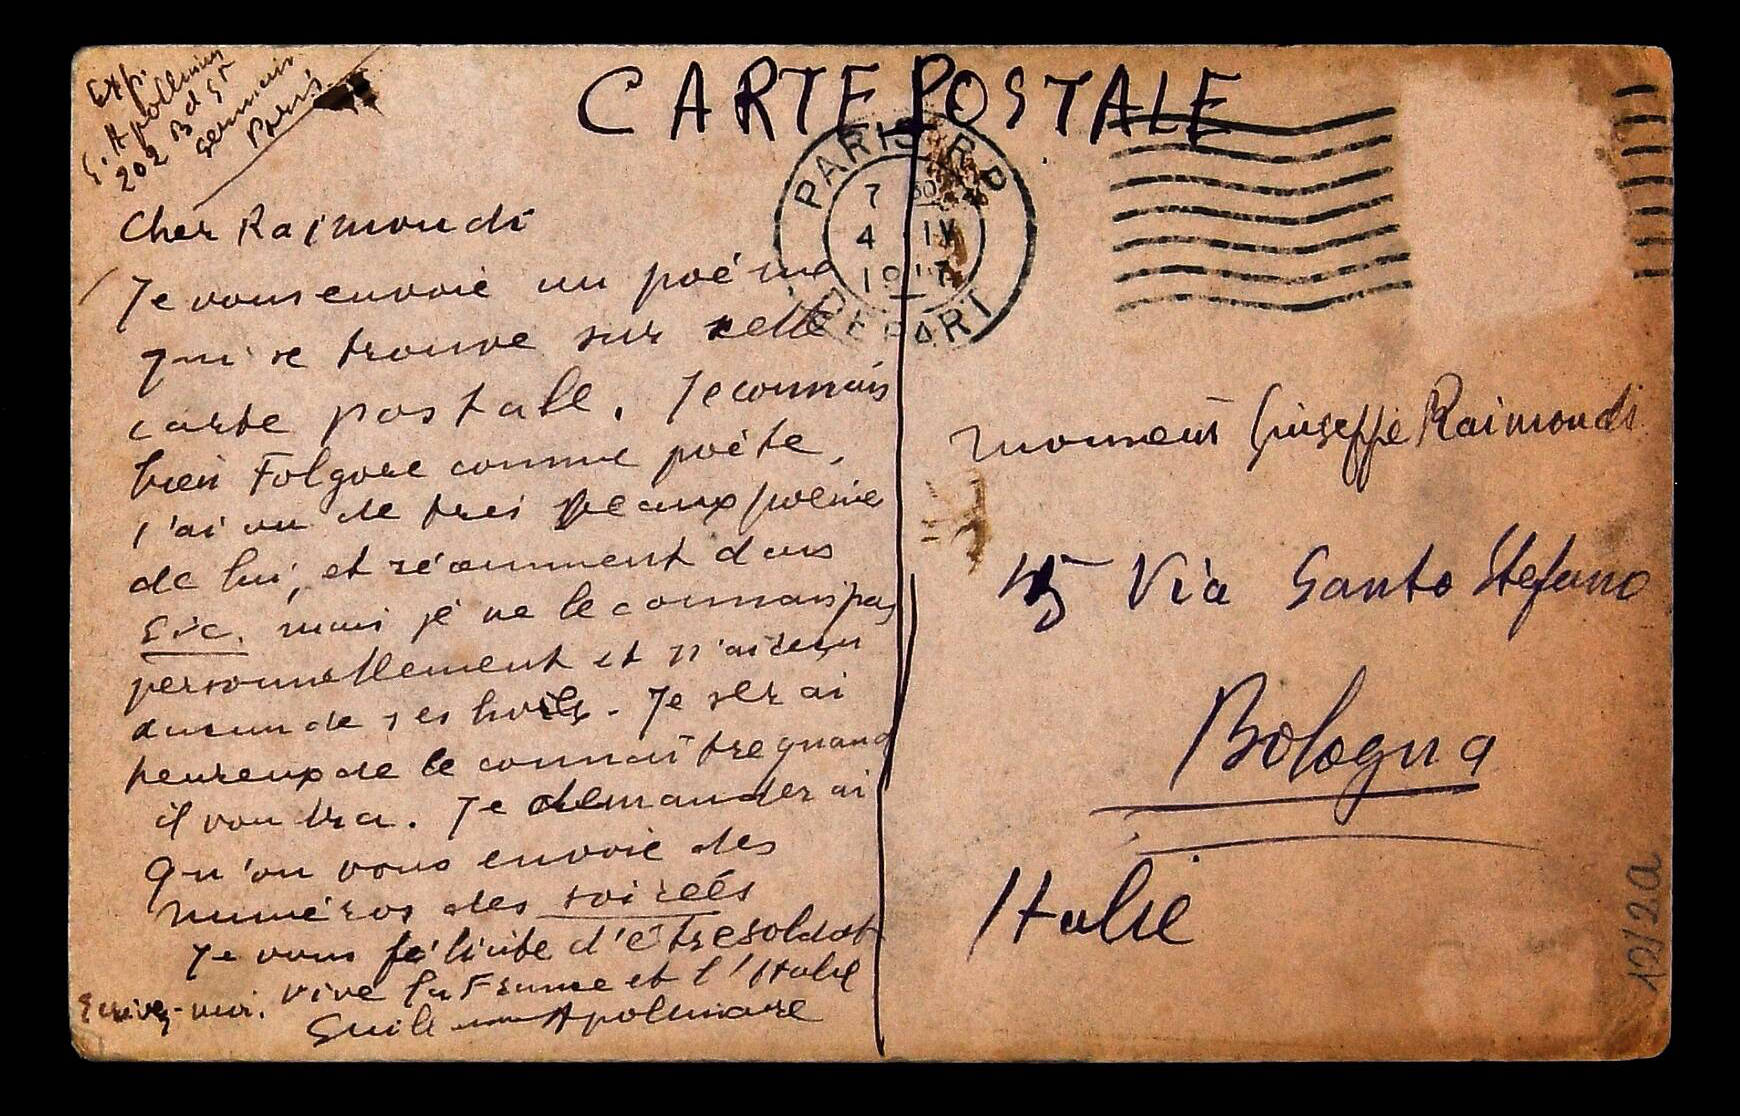 Exp.
G. Apollinaire
202 Bd St
Germain
Paris
CARTE POSTALE
PARIS R.P
7 30
4 IV
1917
DEPART
Cher Raimondi
Je vous envoie un poème
qui se trouve sur cette
carte postale. Je connais
bien Folgore comme poète,
j'ai vu de très beaux poème
de lui, et récemment dans
Sic. mais je ne le connais pas
personnellement et n'ai
aucun de ses livres. Je serai
heureux de le connaître quand
il voudra. Je demanderai
qu'on vous envoie des
numéros des soirées
Je vous félicite d'être soldat
Vive la France et l'Italie
Ecrivez-moi.
Guill Apollinaire
Monsieur Giuseppe Raimondi
45 Via Santo Stefano
Bologna
Italie
12/2a